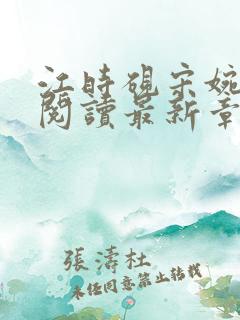 江時硯宋婉
閱讀最新章
張濤杜
未經同意禁止轉載